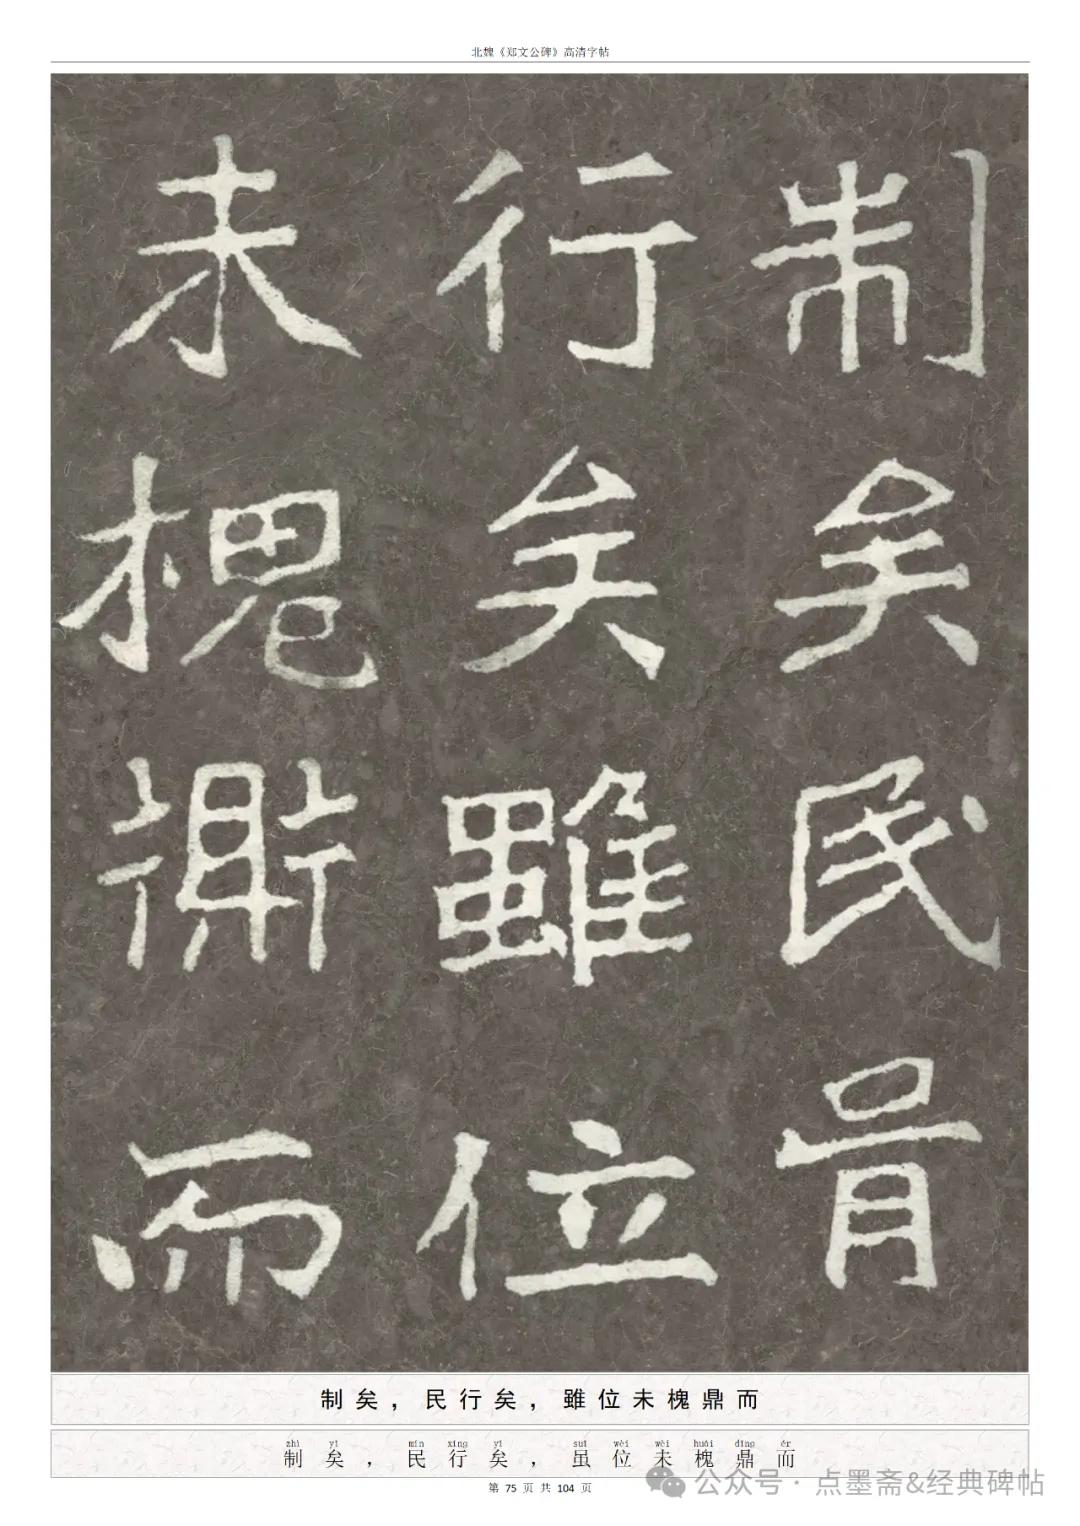 北魏《郑文公碑》高清字帖
制矣民
行矣雖位
未槐鼎而
制矣，民行矣，雖位未槐鼎而
zhì yǐ mín xíng yǐ suī wèi wèi huái dǐng ér
制矣，民行矣，虽位未槐鼎而
第 75 页 共 104 页
公众号·点墨斋&经典碑帖